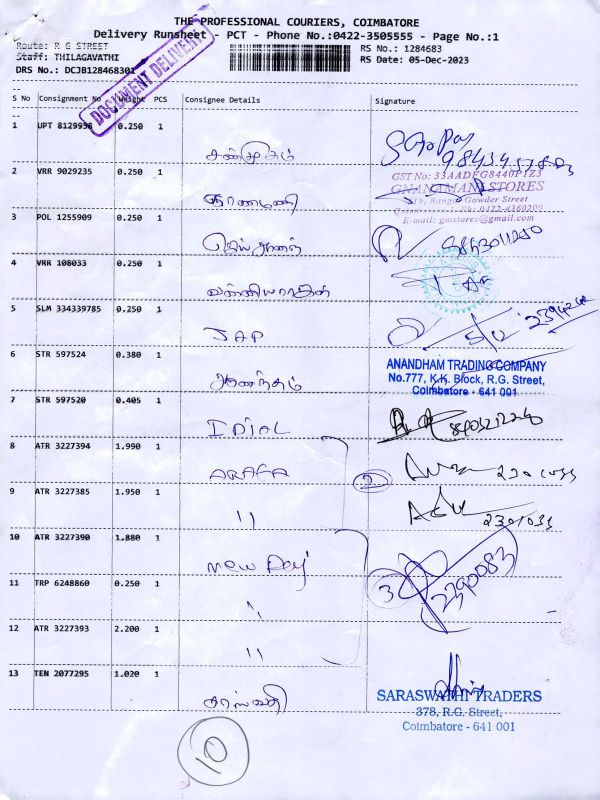 THE PROFESSIONAL COURIERS, COIMBATORE
Delivery Runsheet - PCT - Phone No.:0422-3505555 - Page No.:1
Route: R G STREET
RS No.: 1284683
Staff: THILAGAVATHI
RS Date: 05-Dec-2023
DRS No.: DCJB128468301
DOCUMENT DELIVERY
S No Consignment No Weight PCS Consignee Details Signature
1 UPT 8129958 0.250 1 சண்முகம்
2 VRR 9029235 0.250 1 ஞானமணி
GST No: 33AADFG8440P1Z3
GNANAMANI STORES
Gowder Street
E-mail: gmstores@gmail.com
3 POL 1255909 0.250 1
4 VRR 108033 0.250 1
5 SLM 334339785 0.250 1 JAP
6 STR 597524 0.380 1 ஆனந்தம்
ANANDHAM TRADING COMPANY
No.777, K.K. Block, R.G. Street,
Coimbatore - 641 001
7 STR 597520 0.405 1 IDIAL
8 ATR 3227394 1.990 1 ARAFA 2 2301033
9 ATR 3227385 1.950 1 " 2301033
10 ATR 3227390 1.880 1 New Day
11 TRP 6248860 0.250 1 " 3 2390083
12 ATR 3227393 2.200 1 "
13 TEN 2077295 1.020 1
SARASWATHI TRADERS
378, R.G. Street,
Coimbatore - 641 001
10